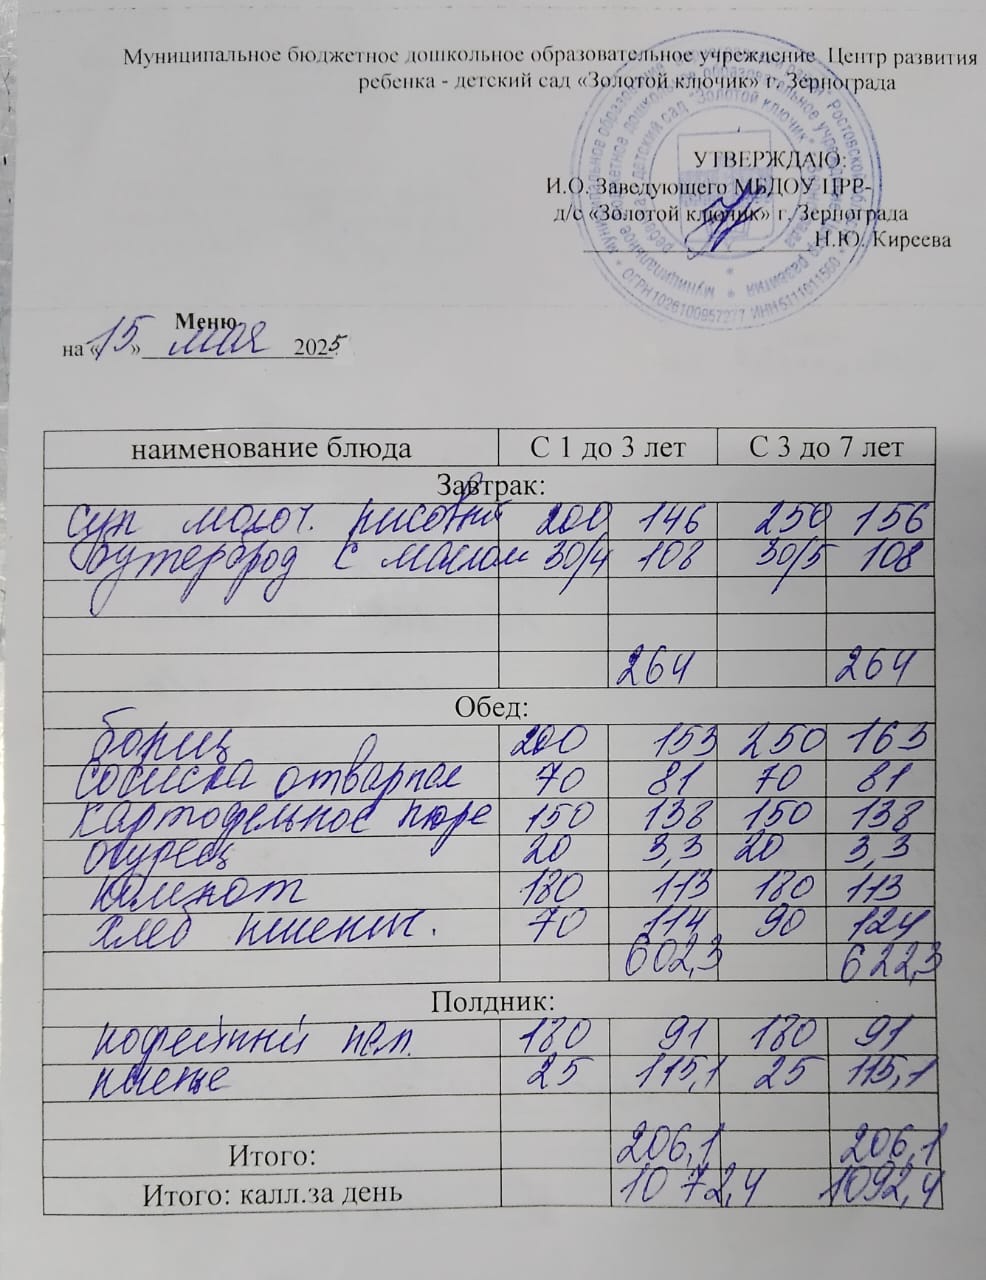 Муниципальное бюджетное дошкольное образовательное учреждение Центр развития
ребенка - детский сад «Золотой ключик» г. Зернограда
УТВЕРЖДАЮ:
И.О. Заведующего МБДОУ ЦРР-
д/с «Золотой ключик» г. Зернограда
Н.Ю. Киреева
Меню
на «15» мая 2025
наименование блюда С 1 до 3 лет С 3 до 7 лет
Завтрак:
суп молоч. рисовый 200 146 250 156
Бутерброд с маслом 30/4 108 30/5 108
264 264
Обед:
борщ 200 153 250 163
сосиска отварная 70 81 70 81
картофельное пюре 150 138 150 138
огурец 20 3,3 20 3,3
компот 180 113 180 113
хлеб пшенич. 70 114 90 124
602,3 622,3
Полдник:
кофейный нап. 180 91 180 91
25 115,1 25 115,1
Итого: 206,1 206,1
Итого: калл.за день 1072,4 1092,4